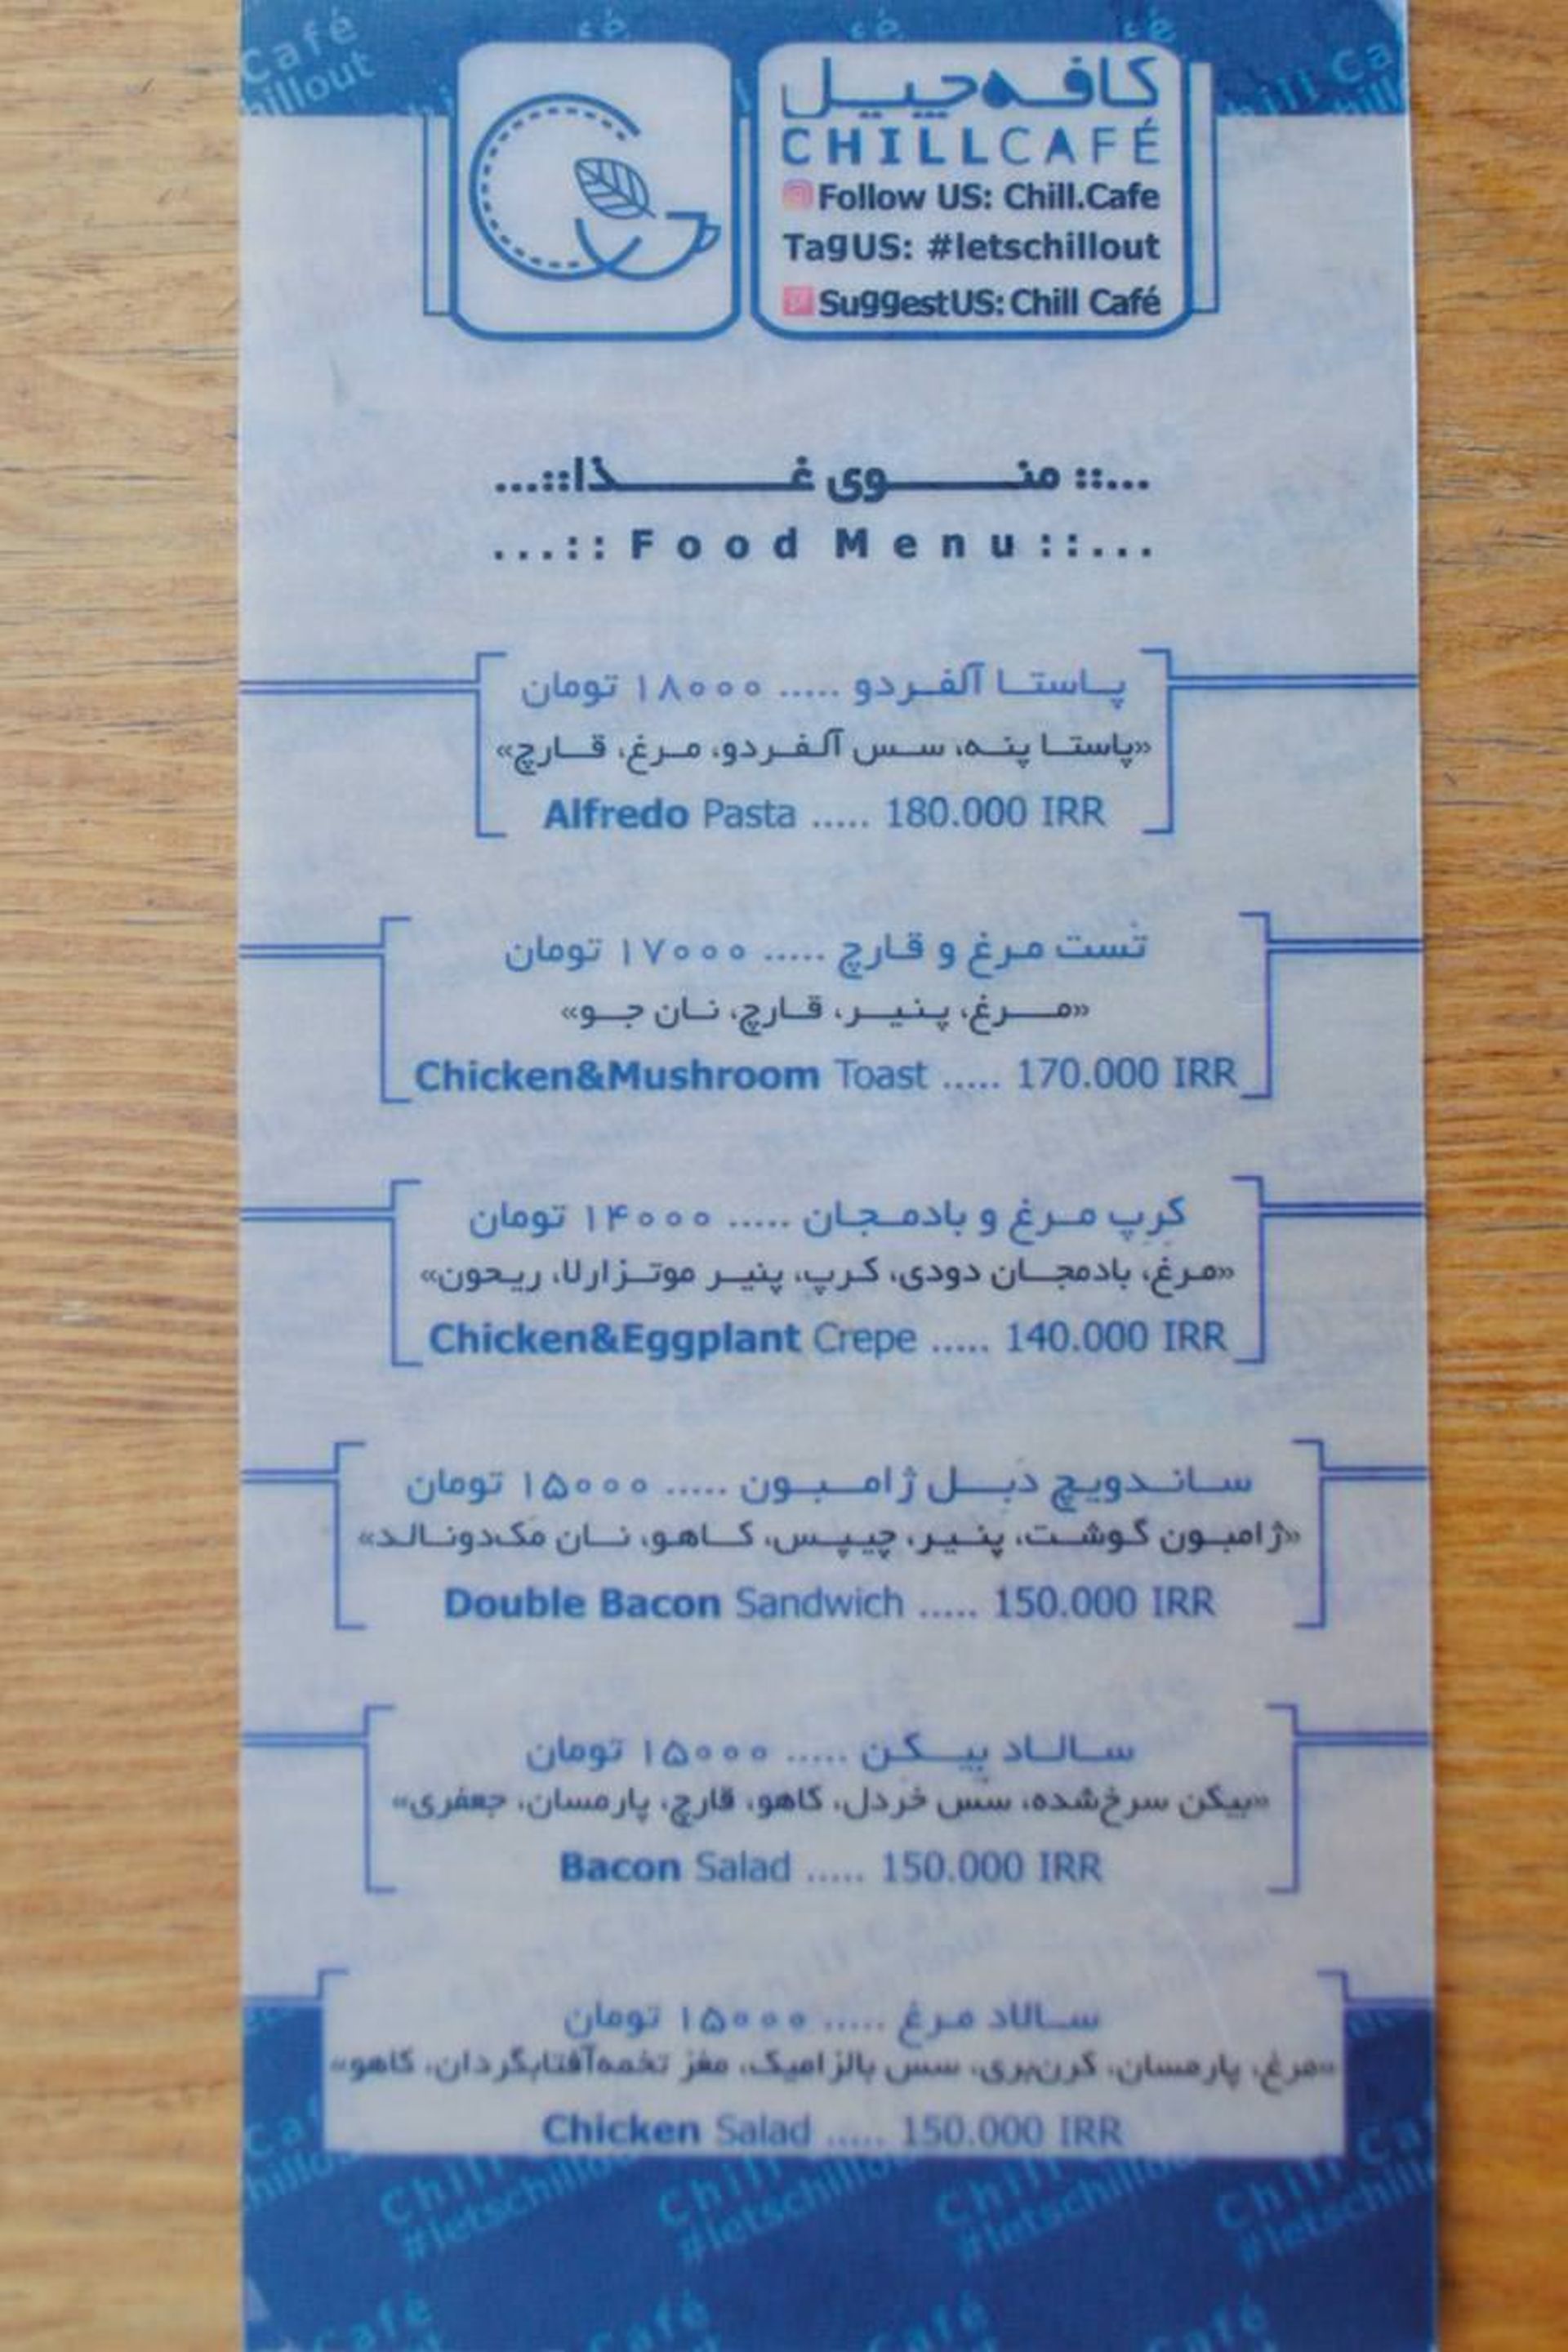 کافه چیل
CHILLCAFÉ
Follow US: Chill.Cafe
TagUS: #letschillout
SuggestUS: Chill Café
...:: منوی غذا ::...
...:: Food Menu ::...
پاستا آلفردو ..... ۱۸۰۰۰ تومان
«پاستا پنه، سس آلفردو، مرغ، قارچ»
Alfredo Pasta ..... 180.000 IRR
تست مرغ و قارچ ..... ۱۷۰۰۰ تومان
«مرغ، پنیر، قارچ، نان جو»
Chicken&Mushroom Toast ..... 170.000 IRR
کرپ مرغ و بادمجان ..... ۱۴۰۰۰ تومان
«مرغ، بادمجان دودی، کرپ، پنیر موتزارلا، ریحون»
Chicken&Eggplant Crepe ..... 140.000 IRR
ساندویچ دبل ژامبون ..... ۱۵۰۰۰ تومان
«ژامبون گوشت، پنیر، چیپس، کاهو، نان مک‌دونالد»
Double Bacon Sandwich ..... 150.000 IRR
سالاد بیکن ..... ۱۵۰۰۰ تومان
«بیکن سرخ‌شده، سس خردل، کاهو، قارچ، پارمسان، جعفری»
Bacon Salad ..... 150.000 IRR
سالاد مرغ ..... ۱۵۰۰۰ تومان
«مرغ، پارمسان، کرن‌بری، سس بالزامیک، مغز تخمه‌آفتابگردان، کاهو»
Chicken Salad ..... 150.000 IRR